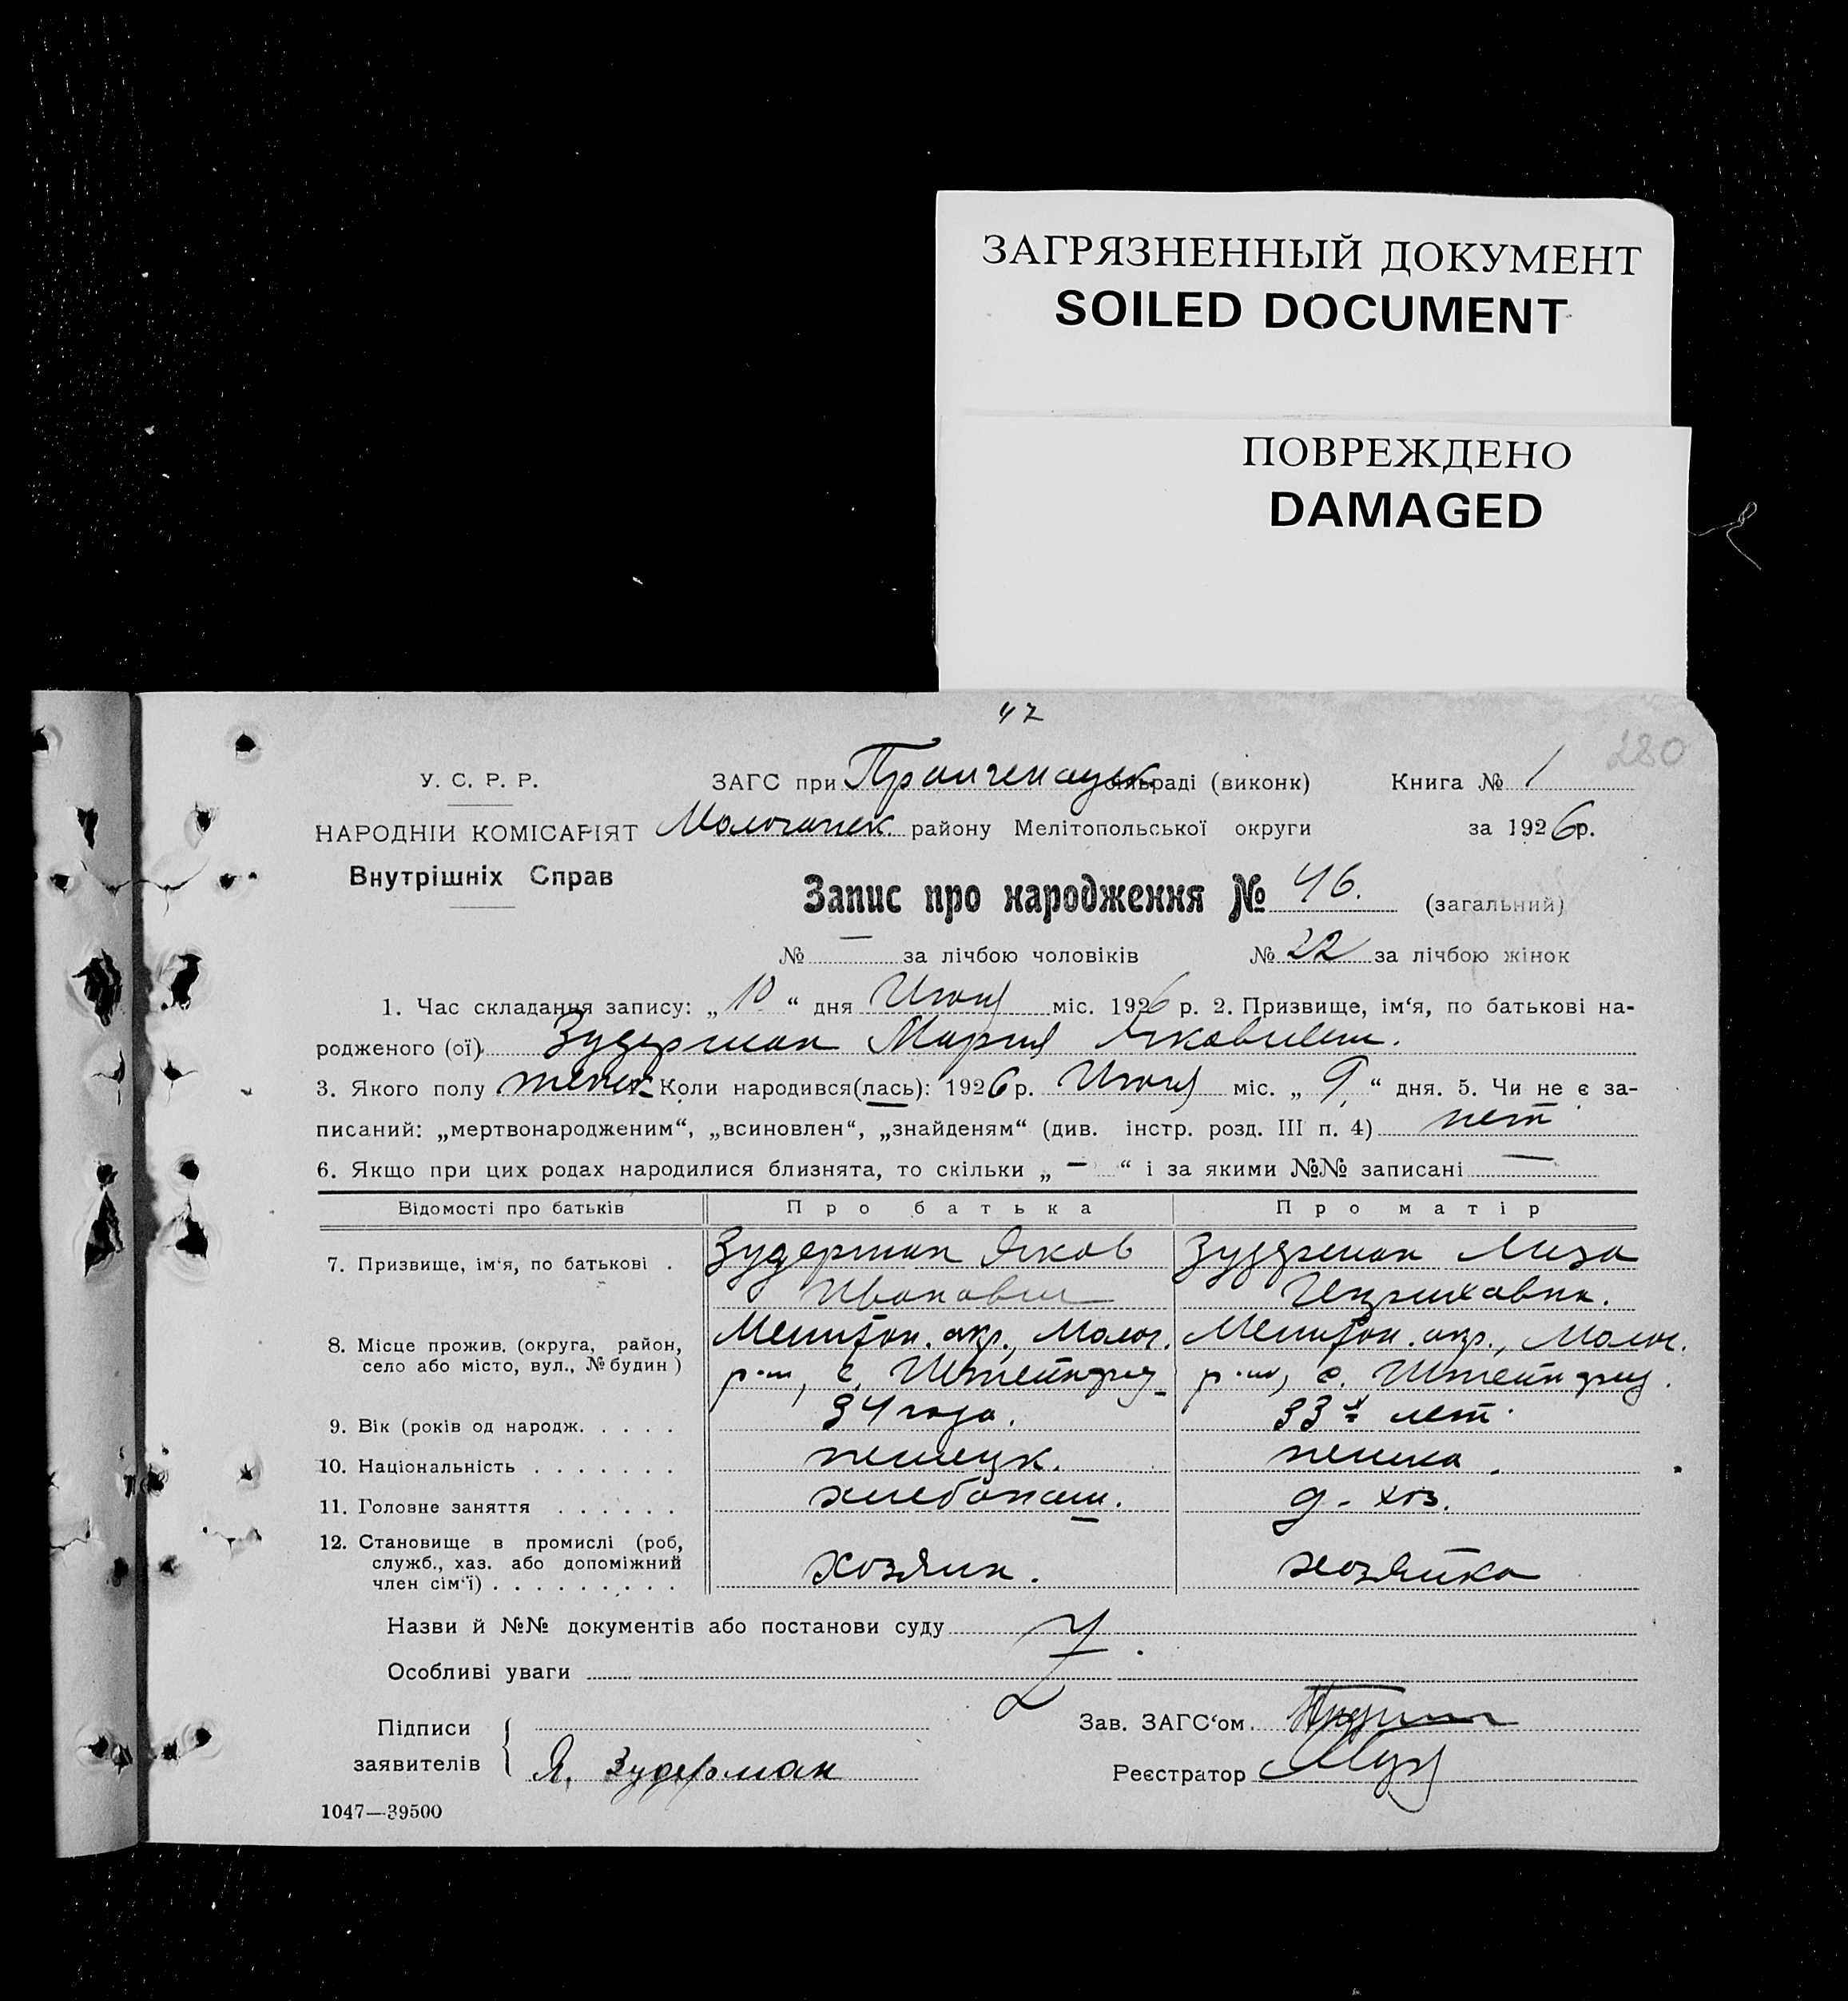 ЗАГРЯЗНЕННЫЙ ДОКУМЕНТ
SOILED DOCUMENT
ПОВРЕЖДЕНО
DAMAGED
47
280
У. С. Р. Р.
НАРОДНІЙ КОМІСАРІЯТ
Внутрішніх Справ
ЗАГС при сільраді (виконк) Книга № 1
Молочанск. району Мелітопольської округи за 1926 р.
Запис про народження № 46. (загальний)
№ — за лічбою чоловіків № 22 за лічбою жінок
1. Час складання запису: „ 10 “ дня Июня міс. 1926 р. 2. Призвище, ім‘я, по батькові на-
родженого (ої) Зудерман Мария Яковлевн.
3. Якого полу женск. Коли народився(лась): 1926 р. Июня міс. „ 9 “ дня. 5. Чи не є за-
писаний: „мертвонародженим“, „всиновлен“, „знайденям“ (див. інстр. розд. III п. 4) нет
6. Якщо при цих родах народилися близнята, то скільки „ — “ і за якими №№ записані —
Відомості про батьків Про батька Про матір
7. Призвище, ім‘я, по батькові . Зудерман Яков Зудерман Лиза
Иванович Генриховна.
8. Місце прожив. (округа, район, село або місто, вул., № будин) Мелитоп. окр., Молоч. Мелитоп. окр., Молоч.
р-на, с. Штейнфельд р-на, с. Штейнфельд.
9. Вік (років од народж. . . . . 34 года. 33 лет.
10. Національність . . . . . . . немецк. немка.
11. Головне заняття . . . . . . хлебопаш. д-хоз.
12. Становище в промислі (роб, служб., хаз. або допоміжний член сім‘ї) . . . . . . . . . хозяин. хозяйка
Назви й №№ документів або постанови суду
Особливі уваги
Підписи заявителів Я. Зудерман
Зав. ЗАГС‘ом
Реєстратор
1047—39500